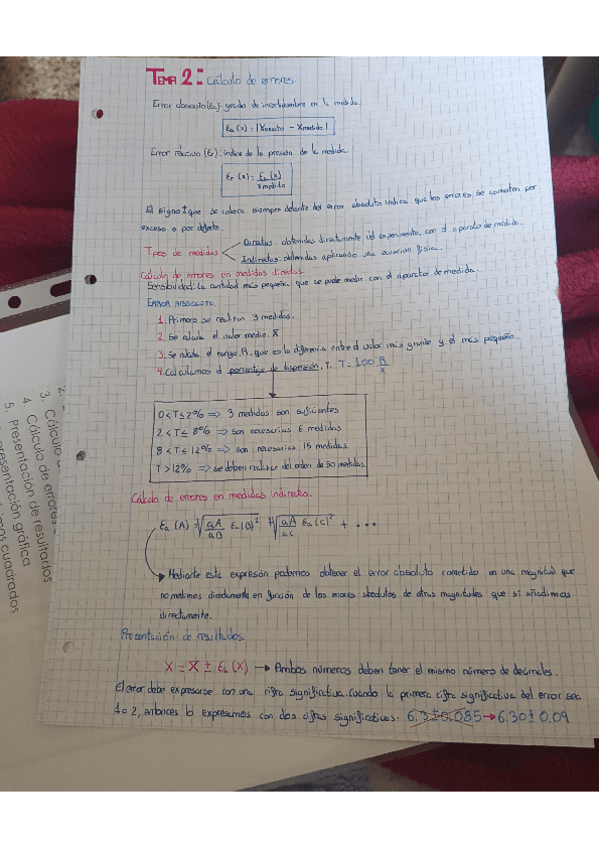 TEMA 2: Cálculo de errores.
Error absoluto (Ea): grado de incertidumbre en la medida.
Ea (x) = |Xexacto - Xmedido|
Error relativo (Er): índice de la precisión de la medida.
Er (x) = Ea (x) / Xmedido
El signo ± que se coloca siempre delante del error absoluto indica que los errores se cometen por
exceso o por defecto.
Tipos de medidas
Directas: obtenidas directamente del experimento, con el aparato de medida.
Indirectas: obtenidas aplicando una ecuación física.
Cálculo de errores en medidas directas.
Sensibilidad: La cantidad más pequeña que se puede medir con el aparato de medida.
ERROR ABSOLUTO.
1. Primero se realizan 3 medidas.
2. Se calcula el valor medio. X̄
3. Se calcula el rango, R, que es la diferencia entre el valor más grande y el más pequeño.
4. Calculamos el porcentaje de dispersión, T. T = 100 R/x̄
0 < T ≤ 2% ⇒ 3 medidas son suficientes
2 < T ≤ 8% ⇒ son necesarias 6 medidas
8 < T ≤ 12% ⇒ son necesarias 15 medidas.
T > 12% ⇒ se deben realizar del orden de 50 medidas.
Cálculo de errores en medidas indirectas.
Ea (A) = √ aA/aB Ea(B)² + √ aA/aC Ea(C)² + ...
Mediante esta expresión podemos obtener el error absoluto cometido en una magnitud que
no medimos directamente en función de los errores absolutos de otras magnitudes que sí añadimos
directamente.
Presentación de resultados.
X = X̄ ± Ea (X) → Ambos números deben tener el mismo número de decimales.
El error debe expresarse con una cifra significativa. Cuando la primera cifra significativa del error sea
1 o 2, entonces lo expresamos con dos cifras significativas. 6,3 ± 0,085 → 6.30 ± 0.09
2.
3. Cálculo
4. Cálculo de errores
5. Presentación de resultados
presentación gráfica
cuadrados